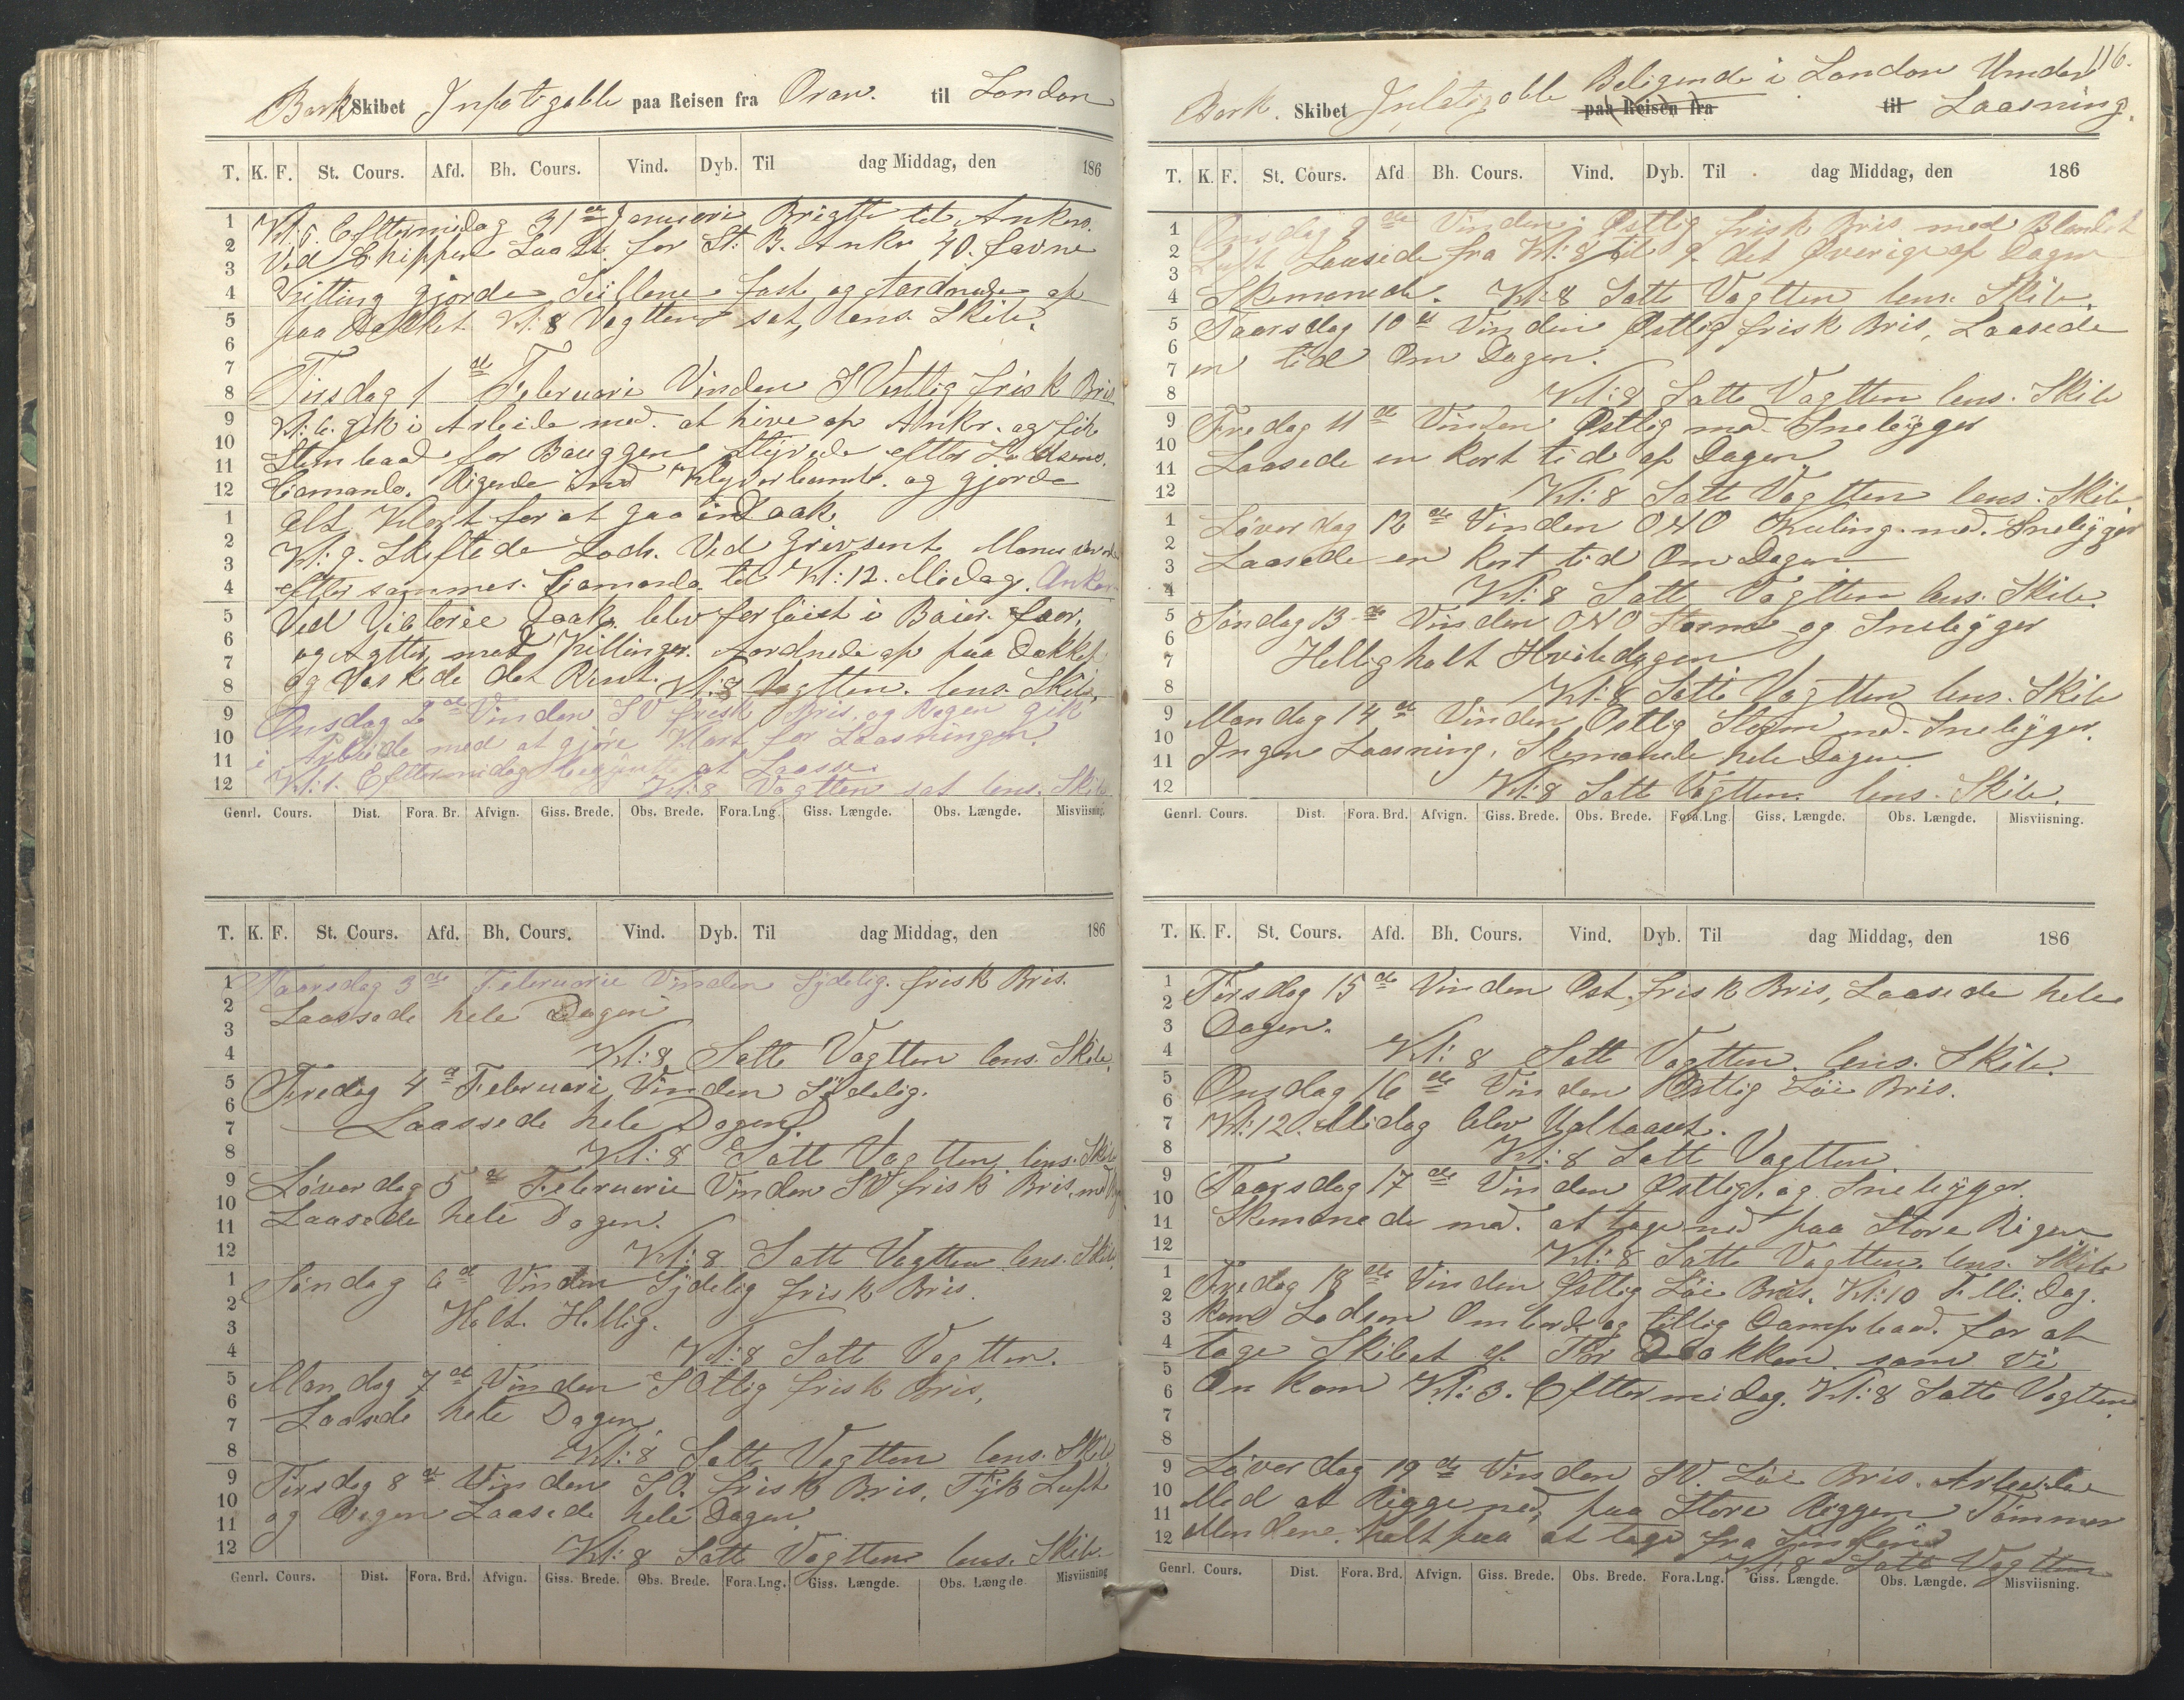 Bark Skibet Infatigable paa Reisen fra Oran. til London
T. K. F. St. Cours. Afd. Bh. Cours. Vind. Dyb. Til dag Middag, den 186
Kl: 5. Eftermidag 31 de Januari Brigtte til Ankers.
Ved Skippen Laa St. for St: B. Ankr 40. favne
Kitting gjorde Seillene fast og Aordnede op
paa Dækket Kl: 8 Vagtten sat, lens Skib.
Tirsdag 1 de Februari Vinden S Vestlig frisk Bris
Kl: 6. gik i Arbeide med. at hive op Ankr. og fik
Stimbaad for Bauggen Styrede efter Lodsens.
Comando. Rigende ind Klyverbomb. og gjorde
alt Klart for at gaa in Daak.
Kl: 9. Skiftede Lods. Ved Grevsent
efter sammes. Comando til Kl: 12. Midag. Ankom
Ved Victorie Daak. blev fortøiet i Baier. foor,
og Agtter med Killinger. Aordnede op paa Dækket
og Vaskede det Rent. Kl: 8 Vagtten. lens. Skib.
Onsdag 2 de Vinden SV frisk Bris. og Regen gik
i Arbeide med at gjöre Klart for Laasningen.
Kl: 1. Eftermidag begünte at Laasse.
Kl: 8 Vagtten sat lens. Skib
Genrl. Cours. Dist. Fora. Br. Afvign. Giss. Brede. Obs. Brede. Fora. Lng. Giss. Længde. Obs. Længde. Misviisning.
T. K. F. St. Cours. Afd. Bh. Cours. Vind. Dyb. Til dag Middag, den 186
Taarsdag 3 de Februarie Vinden Sydelig. frisk Bris.
Laassede hele Dagen
Kl: 8 Satte Vagtten lens. Skib.
Fredag 4 d Februari Vinden Sydelig.
Laassede hele Dagen
Kl: 8 Satte Vagtten lens. Skib
Løverdag 5 d Februarie Vinden SV frisk Bris. med
Laasede hele Dagen.
Kl: 8 Satt Vagtten lens. Skib.
Søndag 6 de Vinden Sydelig frisk Bris.
Holt Hellig.
Kl: 8 Satt Vagtten.
Mandag 7 de Vinden SOtlig frisk Bris,
Laasede hele Dagen
Kl: 8 Satte Vagtten lens. Skib
Tirsdag 8 de Vinden SO. frisk Bris, Tÿk Luft
og Regen Laasede hele Dagen
Kl: 8 Satt Vagtten lens. Skib.
Genrl. Cours. Dist. Fora. Brd. Afvign. Giss. Brede. Obs. Brede. Fora. Lng. Giss. Længde. Obs. Længde Misviisning
116.
Bark. Skibet Infatigable paa Reisen fra Beligende i London Under til Laasning.
T. K. F. St. Cours. Afd Bh. Cours. Vind. Dyb. Til dag Middag, den 186
Onsdag 9 de Vinden Østlig frisk Bris med Blandet
Luft Laasede fra Kl: 8 til 9 det Øverige af Dagen
Skemanede. Kl: 8 Satte Vagtten lens. Skib.
Taarsdag 10 d Vinden Østlig frisk Bris, Laasede
en tid Om Dagen.
Kl: 8 Satte Vagtten lens. Skib
Fredag 11 de Vinden Østlig med. Snebÿger
Laasede en kort tid af Dagen
Kl: 8 Satte Vagtten lens. Skib
Løverdag 12 de Vinden ONO Kuling. med. Snebÿger
Laasede en kort tid Om Dagen
Kl: 8 Satt Vagtten lens. Skib.
Søndag 13 de Vinden ONO Storm og Snebÿger
Hellig holt Hviledagen
Kl: 8 Satte Vagtten lens. Skib
Mandag 14 de Vinden Østlig Storm med. Snebÿger.
Ingen Laasning. Skemanede hele Dagen
Kl: 8 Satt Vagtten. lens. Skib.
Genrl. Cours. Dist. Fora. Brd. Afvign. Giss. Brede. Obs. Brede. Fora. Lng. Giss. Længde. Obs. Længde. Misviisning.
T. K. F. St. Cours. Afd. Bh. Cours. Vind. Dyb. Til dag Middag, den 186
Tirsdag 15 de Vinden Øst, frisk Bris, Laasede hele
Dagen.
Kl: 8 Satt Vagtten. lens. Skib.
Onsdag 16 de Vinden Østlig Löi Bris.
Kl: 12. Midag blev Udlaaset.
Kl: 8 Satt Vagtten
Taarsdag 17 de Vinden Østlig. og Snebÿger.
Skemanede med. at tage ned paa Store Rigen
Kl: 8 Satte Vagtten. lens. Skib
Fredag 18 de Vinden Østlig Löi Bris. Kl: 10 F. Mi. Dag.
kom Lodsen Ombord og tillig Dampbaad. for at
tage Skibet af Dokken. som Vi
On kom Kl: 3. Eftermidag. Kl: 8 Satte Vagtten.
Løverdag 19 de Vinden SV. Löi Bris. Arbeidede
Med at Rigge ned, paa Store Riggen Tömmer
Mendene. holt paa at tage fra
Kl: 8 Satt Vagtten
Genrl. Cours. Dist. Fora. Brd. Afvign. Giss. Brede. Obs. Brede. Fora. Lng. Giss. Længde. Obs. Længde. Misviisning.